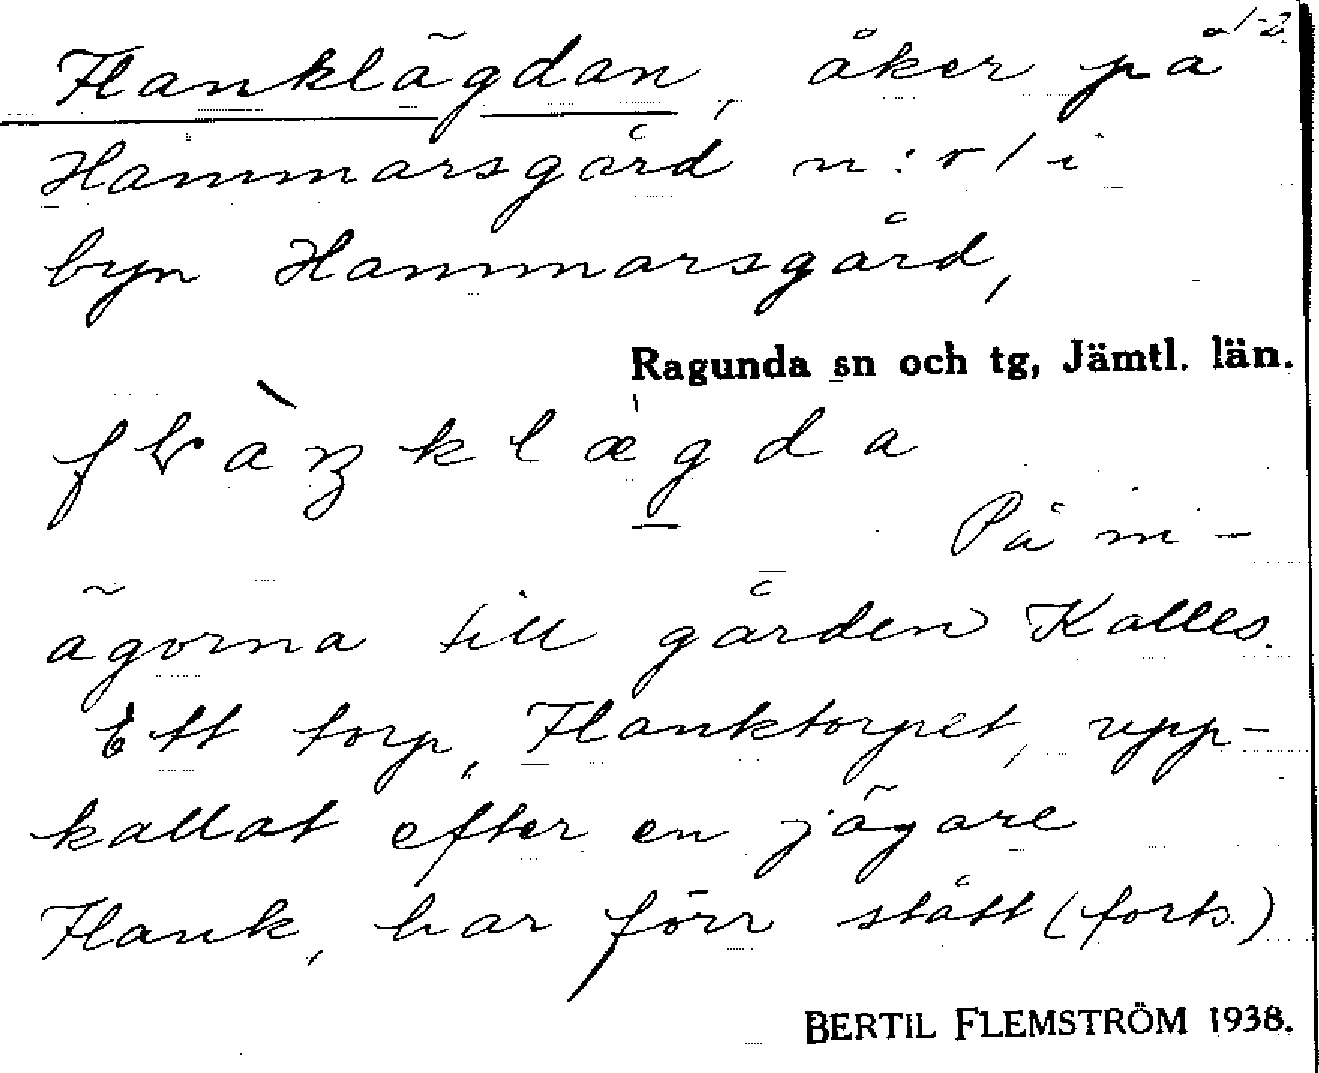 1-2.
Flanklägdan, åker på
Hammarsgård n:r 1 i
byn Hammarsgård,
Ragunda sn och tg, Jämtl. län.
På in-
ägorna till gården Kalles.
Ett torp, Flanktorpet, upp-
kallat efter en jägare
Flank, har förr stått (forts.)
BERTIL FLEMSTRÖM 1938.